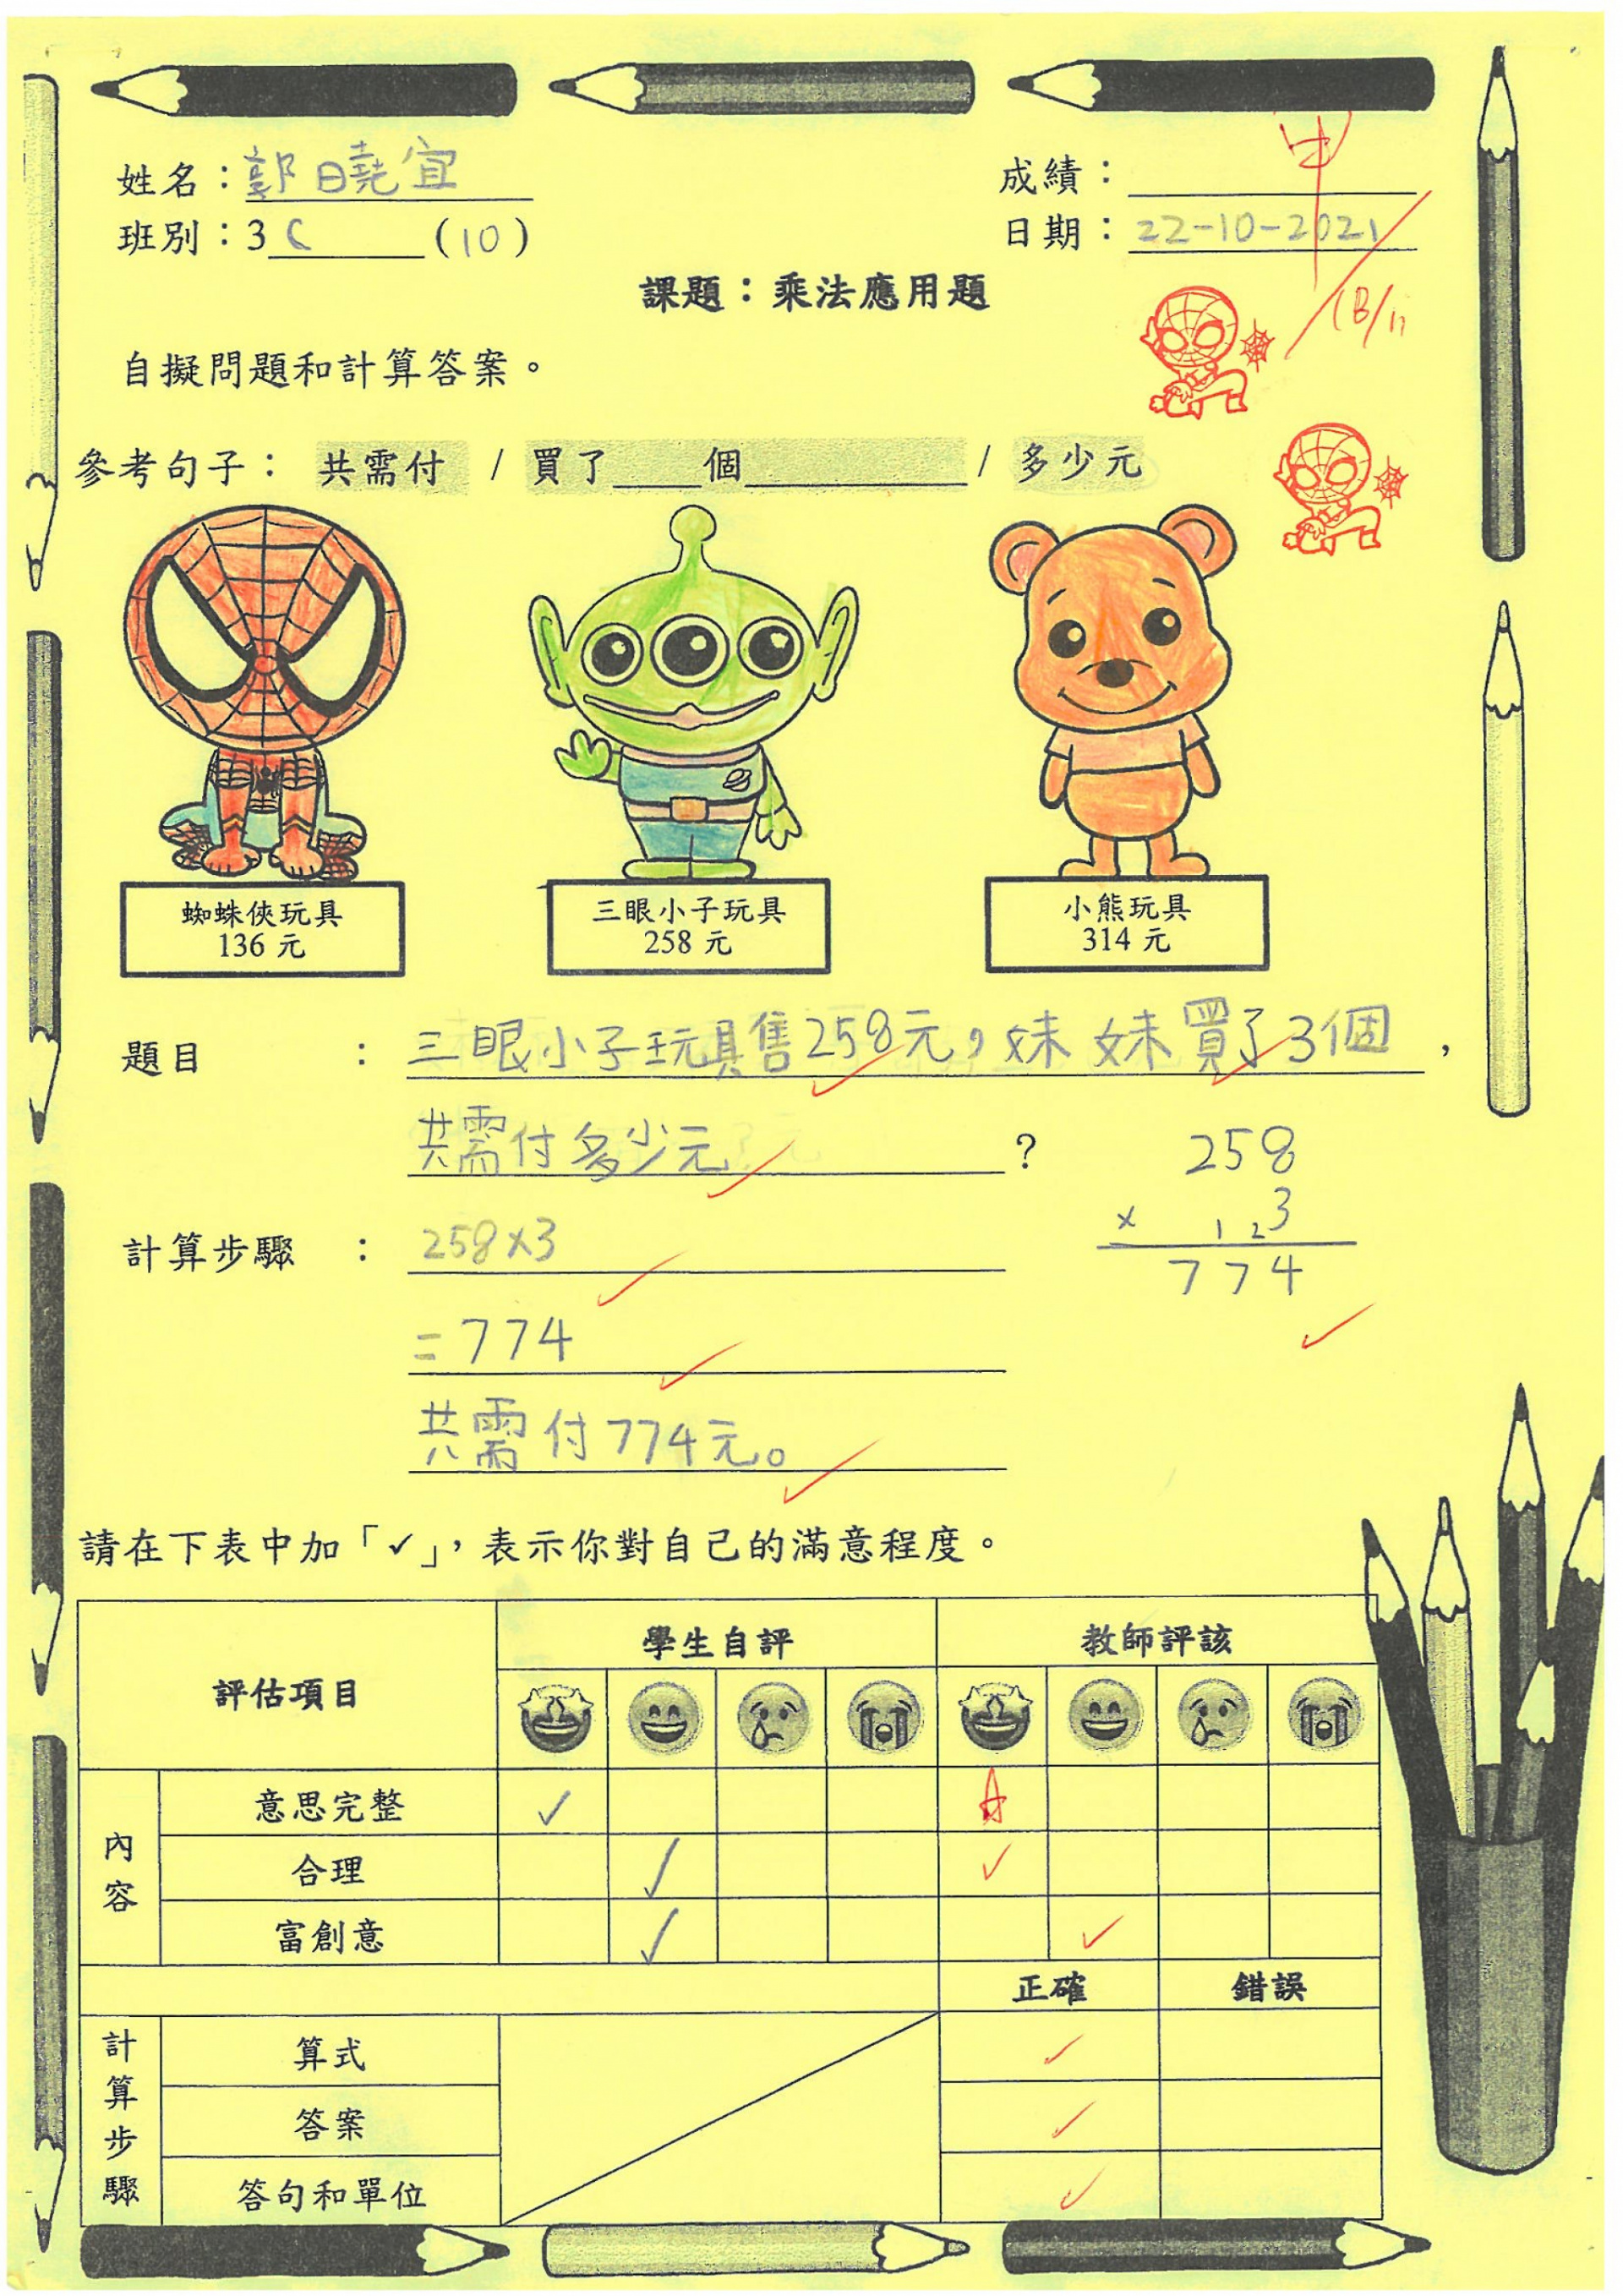 姓名：郭曉宜
成績：甲
班別：3C (10)
日期：22-10-2021
課題：乘法應用題
自擬問題和計算答案。
參考句子： 共需付 / 買了____個__________ / 多少元
蜘蛛俠玩具
136 元
三眼小子玩具
258 元
小熊玩具
314 元
題目 ： 三眼小子玩具售258元，妹妹買了3個，
共需付多少元？
258
× 3
1 2
774
計算步驟 ： 258×3
=774
共需付774元。
請在下表中加「✓」，表示你對自己的滿意程度。
評估項目 學生自評 教師評該
內容
意思完整 ✓
合理 ✓ ✓
富創意 ✓ ✓
正確 錯誤
計算步驟
算式 ✓
答案 ✓
答句和單位 ✓